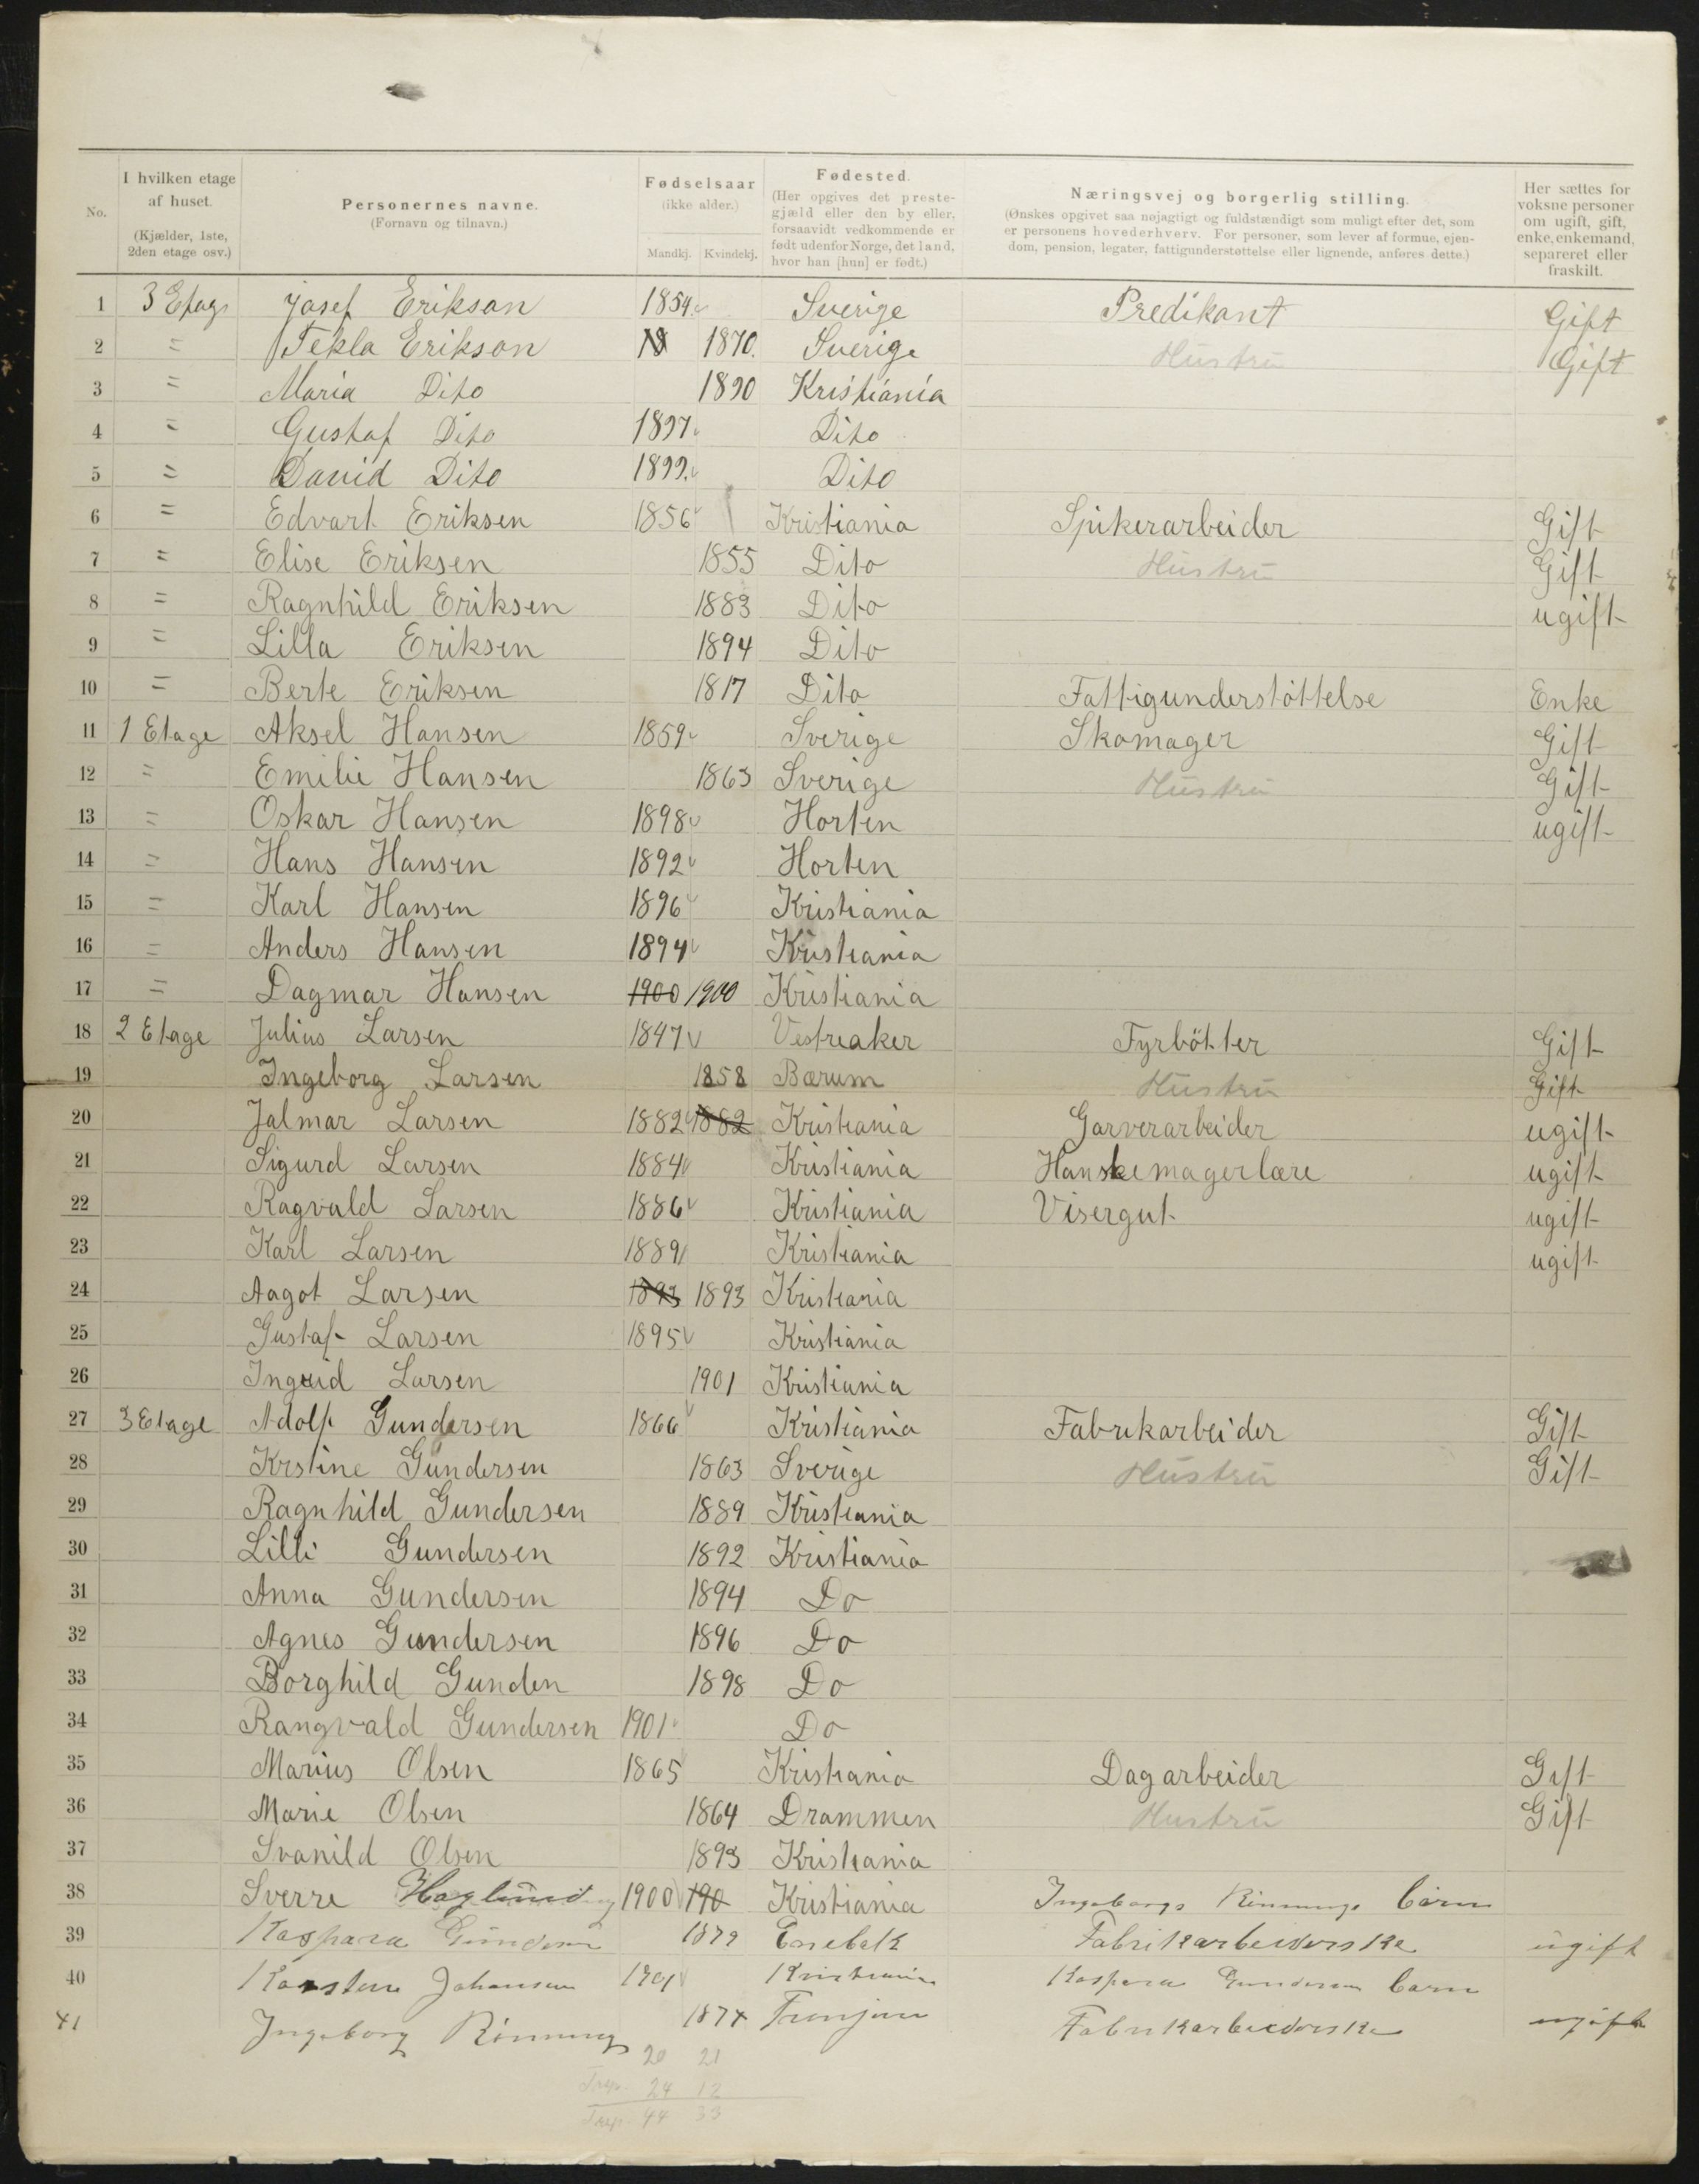 No.
I hvilken etage af huset. (Kjælder, 1ste, 2den etage osv.)
Personernes navne. (Fornavn og tilnavn.)
Fødselsaar (ikke alder.) Mandkj. Kvindekj.
Fødested. (Her opgives det prestegjæld eller den by eller, forsaavidt vedkommende er født udenfor Norge, det land, hvor han [hun] er født.)
Næringsvej og borgerlig stilling. (Ønskes opgivet saa nøjagtigt og fuldstændigt som muligt efter det, som er personens hovederhverv. For personer, som lever af formue, ejendom, pension, legater, fattigunderstøttelse eller lignende, anføres dette.)
Her sættes for voksne personer om ugift, gift, enke, enkemand, separeret eller fraskilt.
1 3 Etage Josef Erikson 1854 Sverige Predikant Gift
2 = Tekla Erikson 18 1870. Sverige Hustru Gift
3 = Maria Dito 1890 Kristiania
4 = Gustaf Dito 1897 Dito
5 = David Dito 1899. Dito
6 = Edvart Eriksen 1856 Kristiania Spikerarbeider Gift
7 = Elise Eriksen 1855 Dito Hustru Gift
8 = Ragnhild Eriksen 1883 Dito ugift
9 = Lilla Eriksen 1894 Dito
10 = Berte Eriksen 1817 Dito Fattigunderstöttelse Enke
11 1 Etage Aksel Hansen 1859 Sverige Skomager Gift
12 = Emilie Hansen 1863 Sverige Hustru Gift
13 = Oskar Hansen 1898 Horten ugift
14 = Hans Hansen 1892 Horten
15 = Karl Hansen 1896 Kristiania
16 = Anders Hansen 1894 Kristiania
17 = Dagmar Hansen 1900 1900 Kristiania
18 2 Etage Julius Larsen 1847 Vestreaker Fyrbötter Gift
19 Ingeborg Larsen 1858 Bærum Hustru Gift
20 Jalmar Larsen 1882 1882 Kristiania Garverarbeider ugift
21 Sigurd Larsen 1884 Kristiania Hanskemagerlære ugift
22 Ragvald Larsen 1886 Kristiania Visergut ugift
23 Karl Larsen 1889 Kristiania ugift
24 Aagot Larsen 1893 1893 Kristiania
25 Gustaf Larsen 1895 Kristiania
26 Ingrid Larsen 1901 Kristiania
27 3 Etage Adolf Gundersen 1866 Kristiania Fabrikarbeider Gift
28 Krstine Gundersen 1863 Sverige Hustru Gift
29 Ragnhild Gundersen 1889 Kristiania
30 Lilli Gundersen 1892 Kristiania
31 Anna Gundersen 1894 Do
32 Agnes Gundersen 1896 Do
33 Borghild Gunden 1898 Do
34 Rangvald Gundersen 1901 Do
35 Marius Olsen 1865 Kristiania Dagarbeider Gift
36 Marie Olsen 1864 Drammen Hustru Gift
37 Svanild Olsen 1893 Kristiania
38 Sverre Haglund 1900 190 Kristiania Ingeborgs Rönnings barn
39 Kaspara Gundersen 1879 Enebak Fabrikarbeiderske ugift
40 Karsten Johansen 1901 Kristiania Kaspara Gundersen barn
41 Ingeborg Rönning 1874 Fabrikarbeiderske ugift
20 21
24 12
44 33